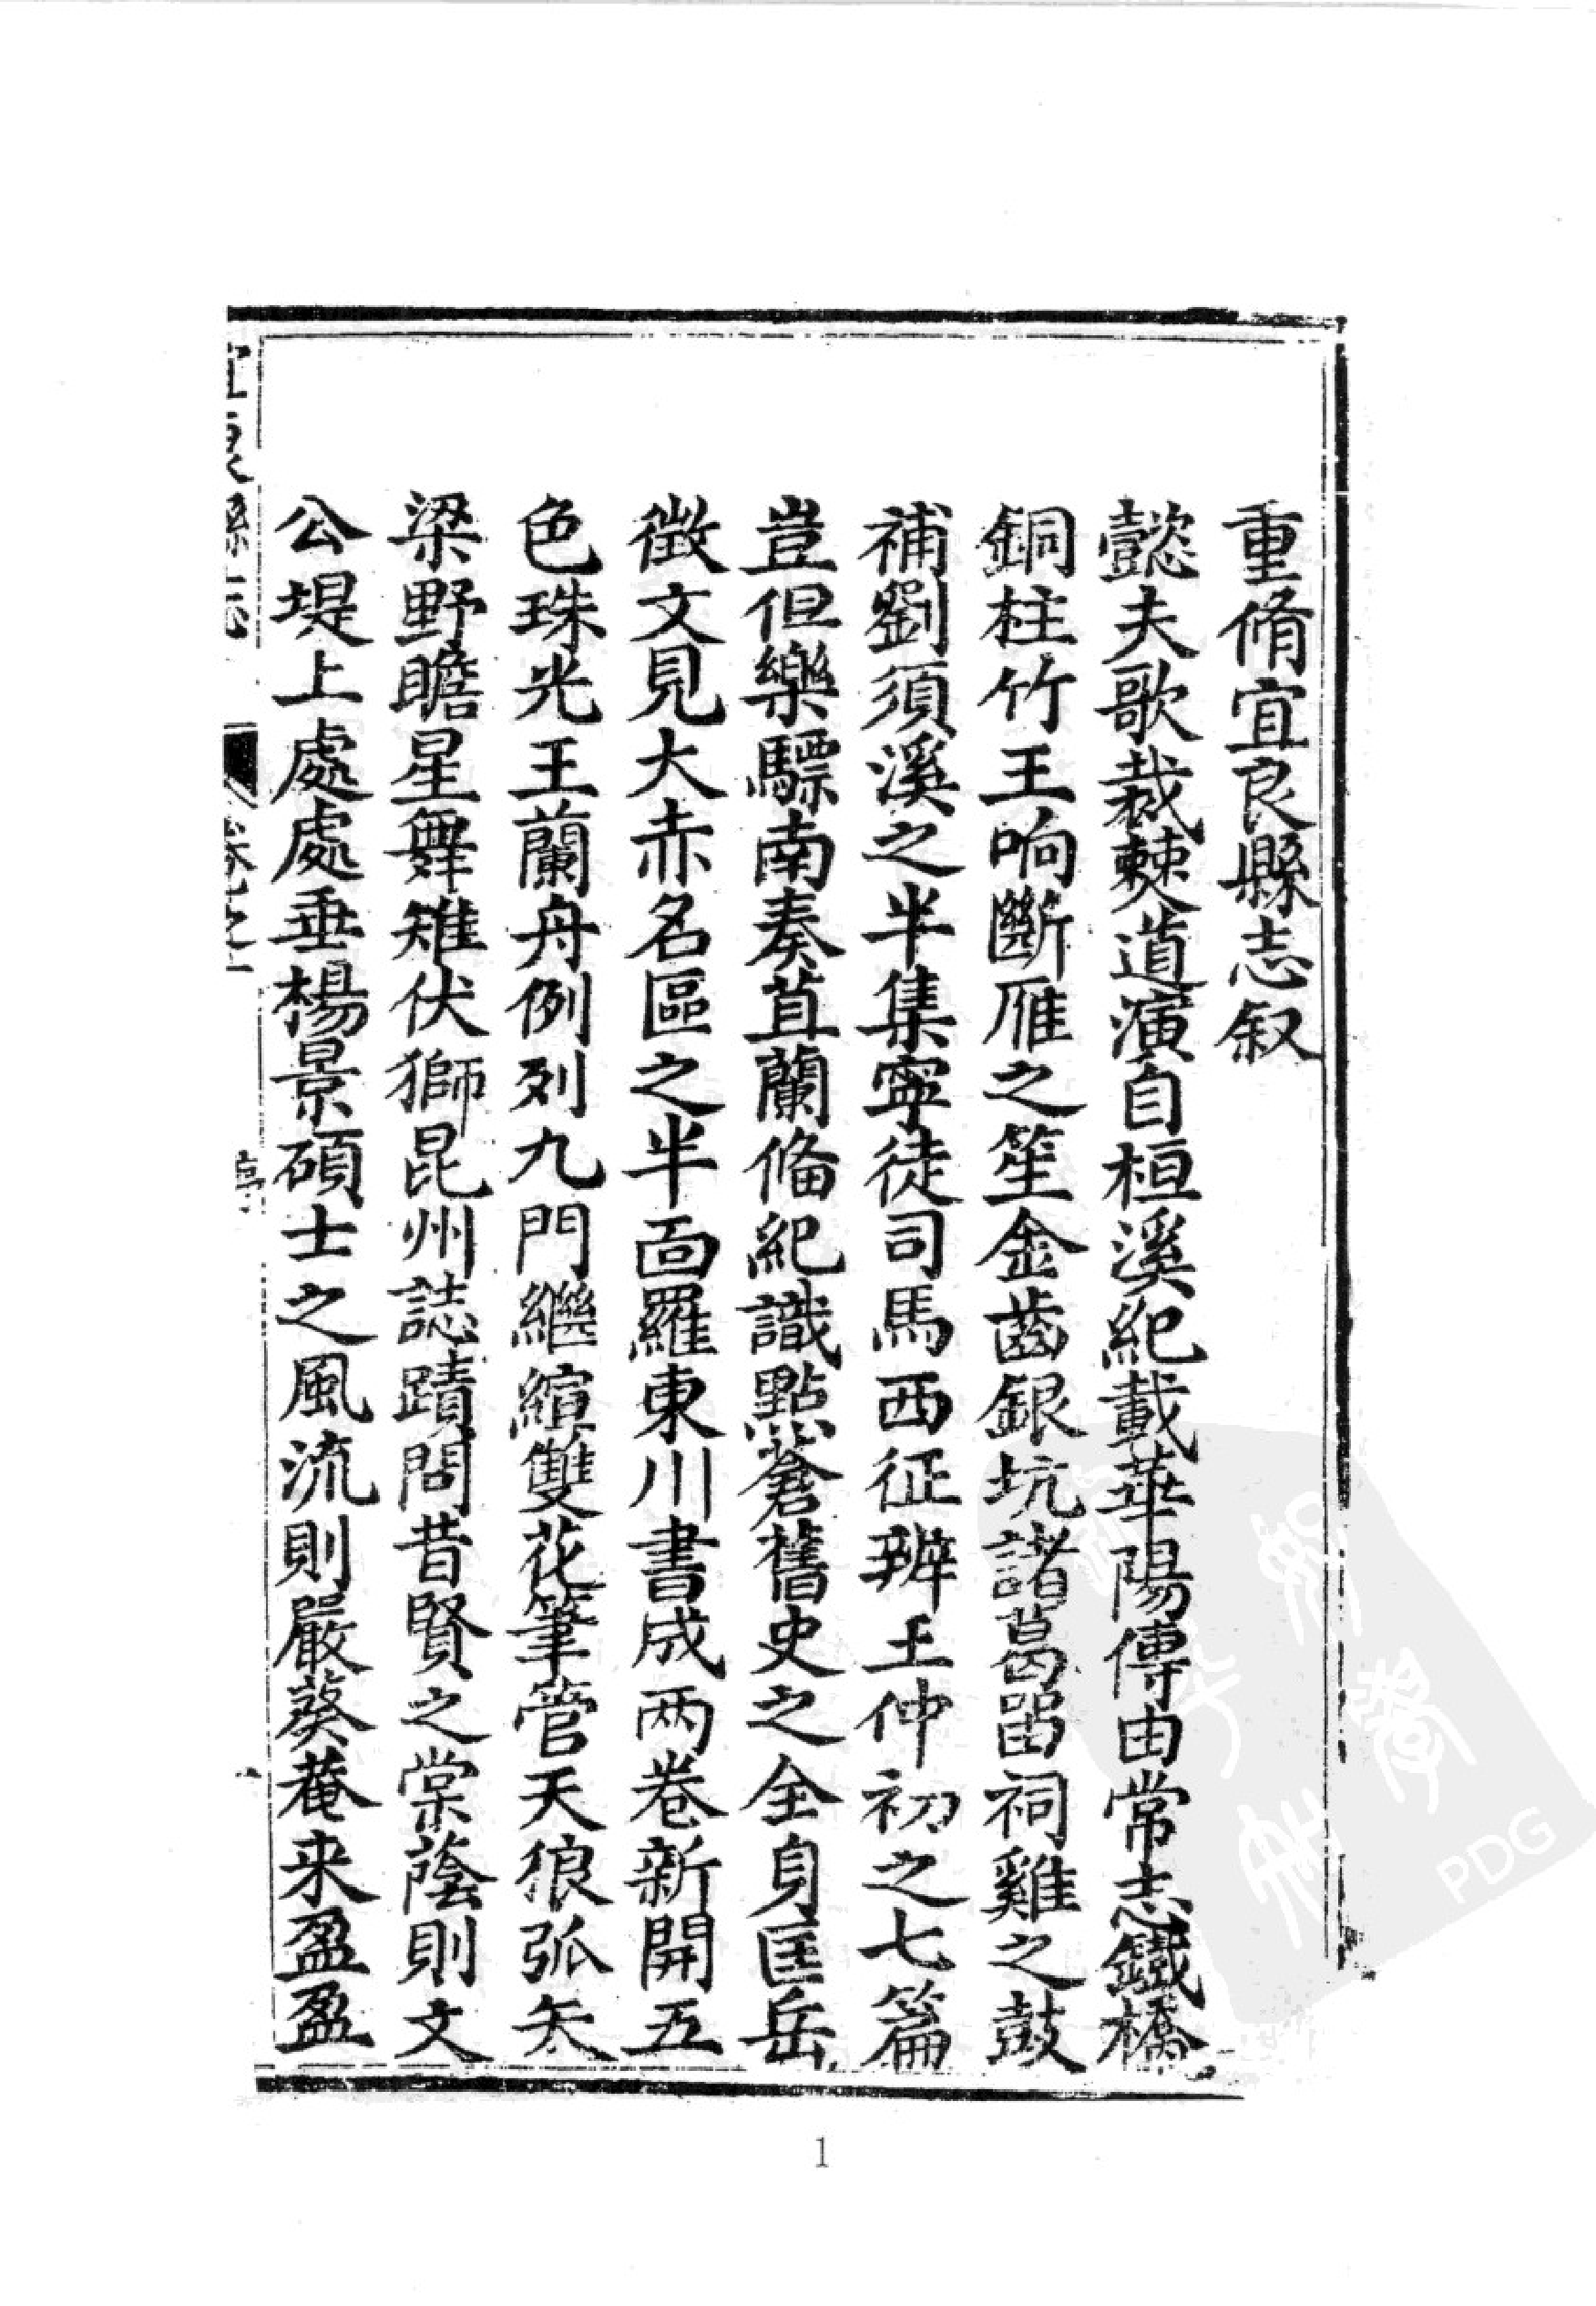 重脩宜良縣志叙
懿夫歌裁僰道演自桓溪紀載華陽傳由常志鐵橋
銅柱竹王响斷雁之笙金齒銀坑諸葛留祠雞之鼓
補劉須溪之半集寧徒司馬西征辨王仲初之七篇
豈但樂驃南奏苴蘭俻紀識點蒼舊史之全身匡岳
徴文見大赤名區之半面羅東川書成两卷新開五
色珠光王蘭舟例列九門繼縮雙花筆管天狼弧矢
梁野瞻星舞雉伏獅昆州誌蹟問昔賢之棠蔭則文
公堤上處處垂楊景碩士之風流則嚴葵菴来盈盈
宜良縣志
卷之
1
PDG